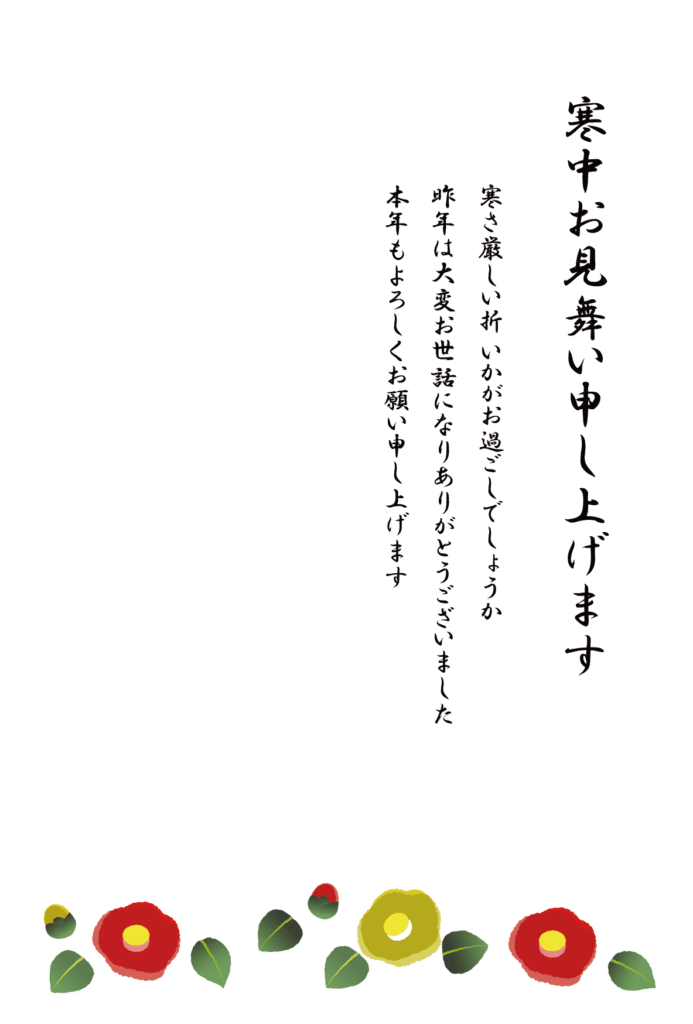 寒中お見舞い申し上げます
寒さ厳しい折 いかがお過ごしでしょうか
昨年は大変お世話になりありがとうございました
本年もよろしくお願い申し上げます